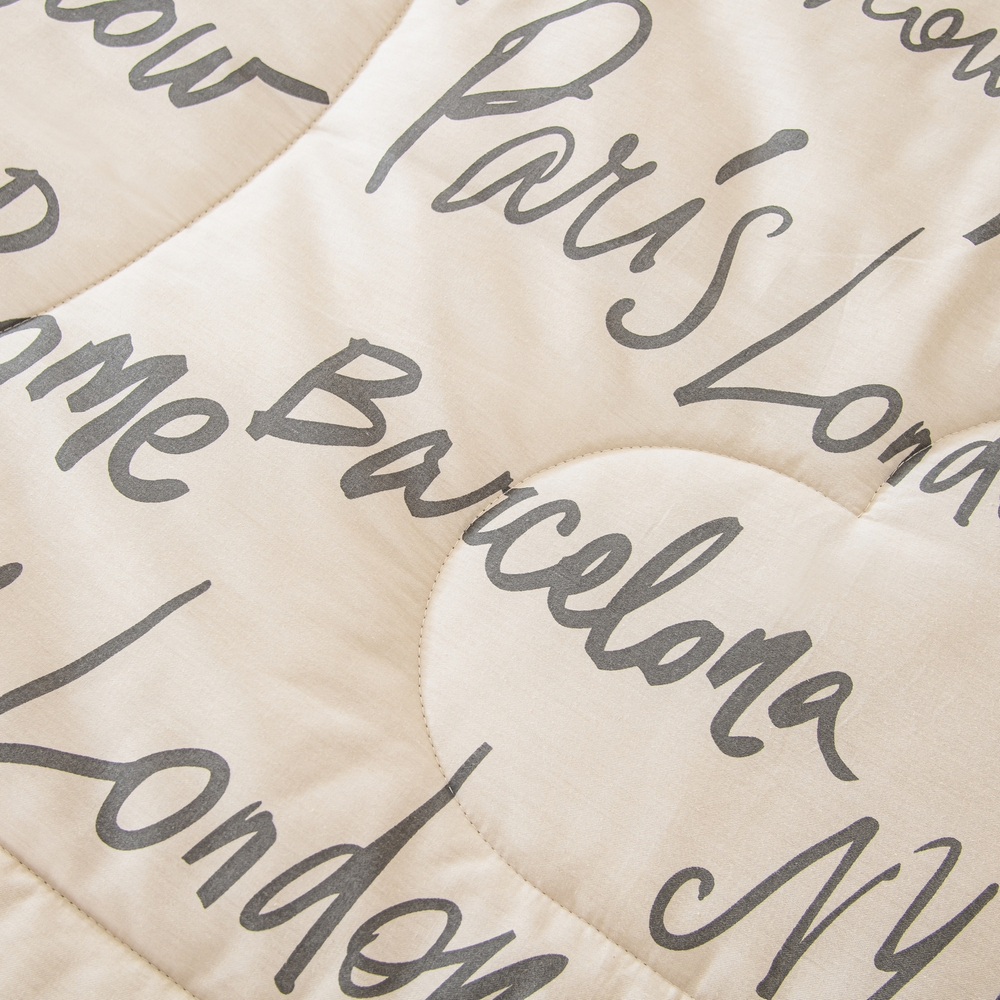 ow
Paris
London
ome Barcelona
London
NY